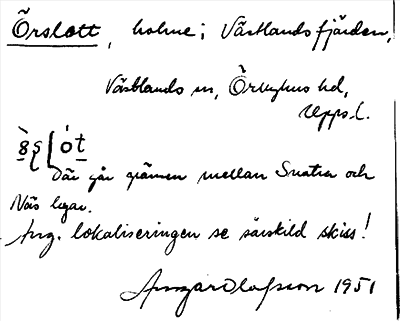 Örslott, holme i Västlandsfjärden,
Västlands sn, Örbyhus hd,
Upps. l.
Där går gränsen mellan Snatra och
Näs byar.
Ang. lokaliseringen se särskild skiss!
Ansgar Olafsson 1951